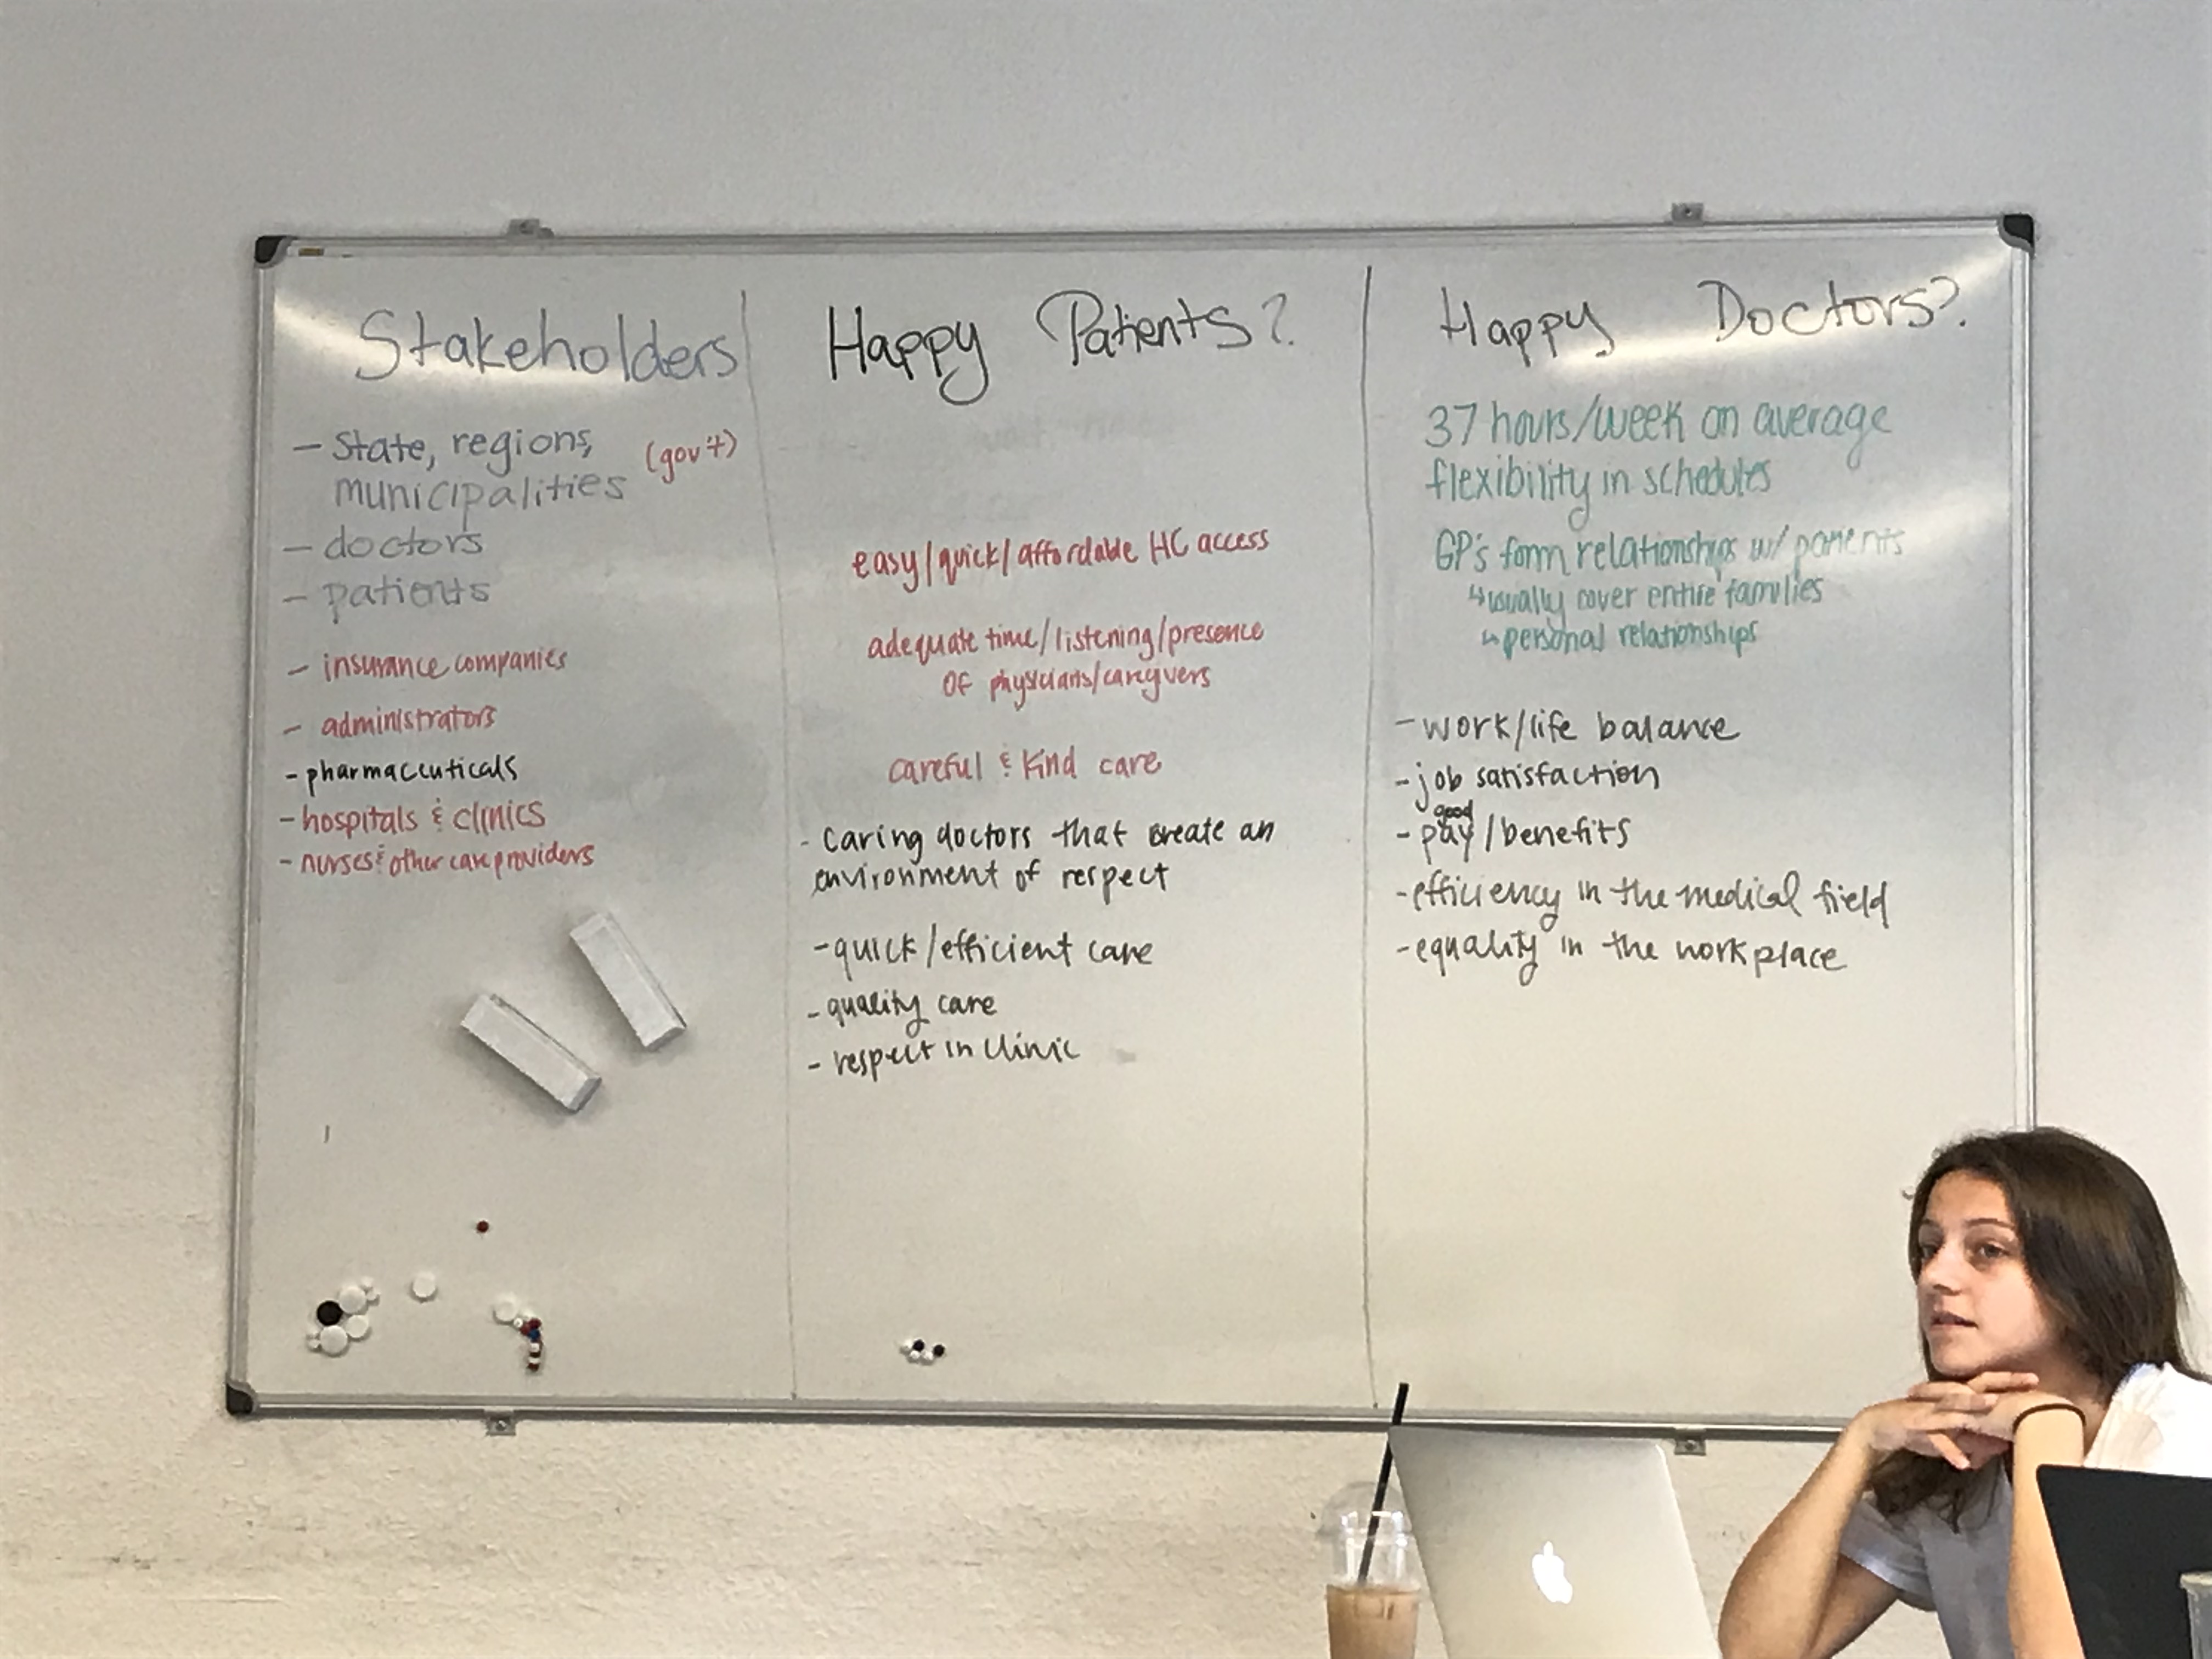 Stakeholders
- State, regions, (gov't)
municipalities
- doctors
- patients
- insurance companies
- administrators
- pharmaceuticals
- hospitals & clinics
- nurses & other care providers
Happy Patients?
easy/quick/affordable HC access
adequate time/listening/presence
of physicians/caregivers
careful & kind care
- Caring doctors that create an
environment of respect
- quick/efficient care
- quality care
- respect in clinic
Happy Doctors?
37 hours/week on average
flexibility in schedules
GP's form relationships w/ patients
↳ usually cover entire families
↳ personal relationships
- work/life balance
- job satisfaction
good
- pay/benefits
- efficiency in the medical field
- equality in the workplace